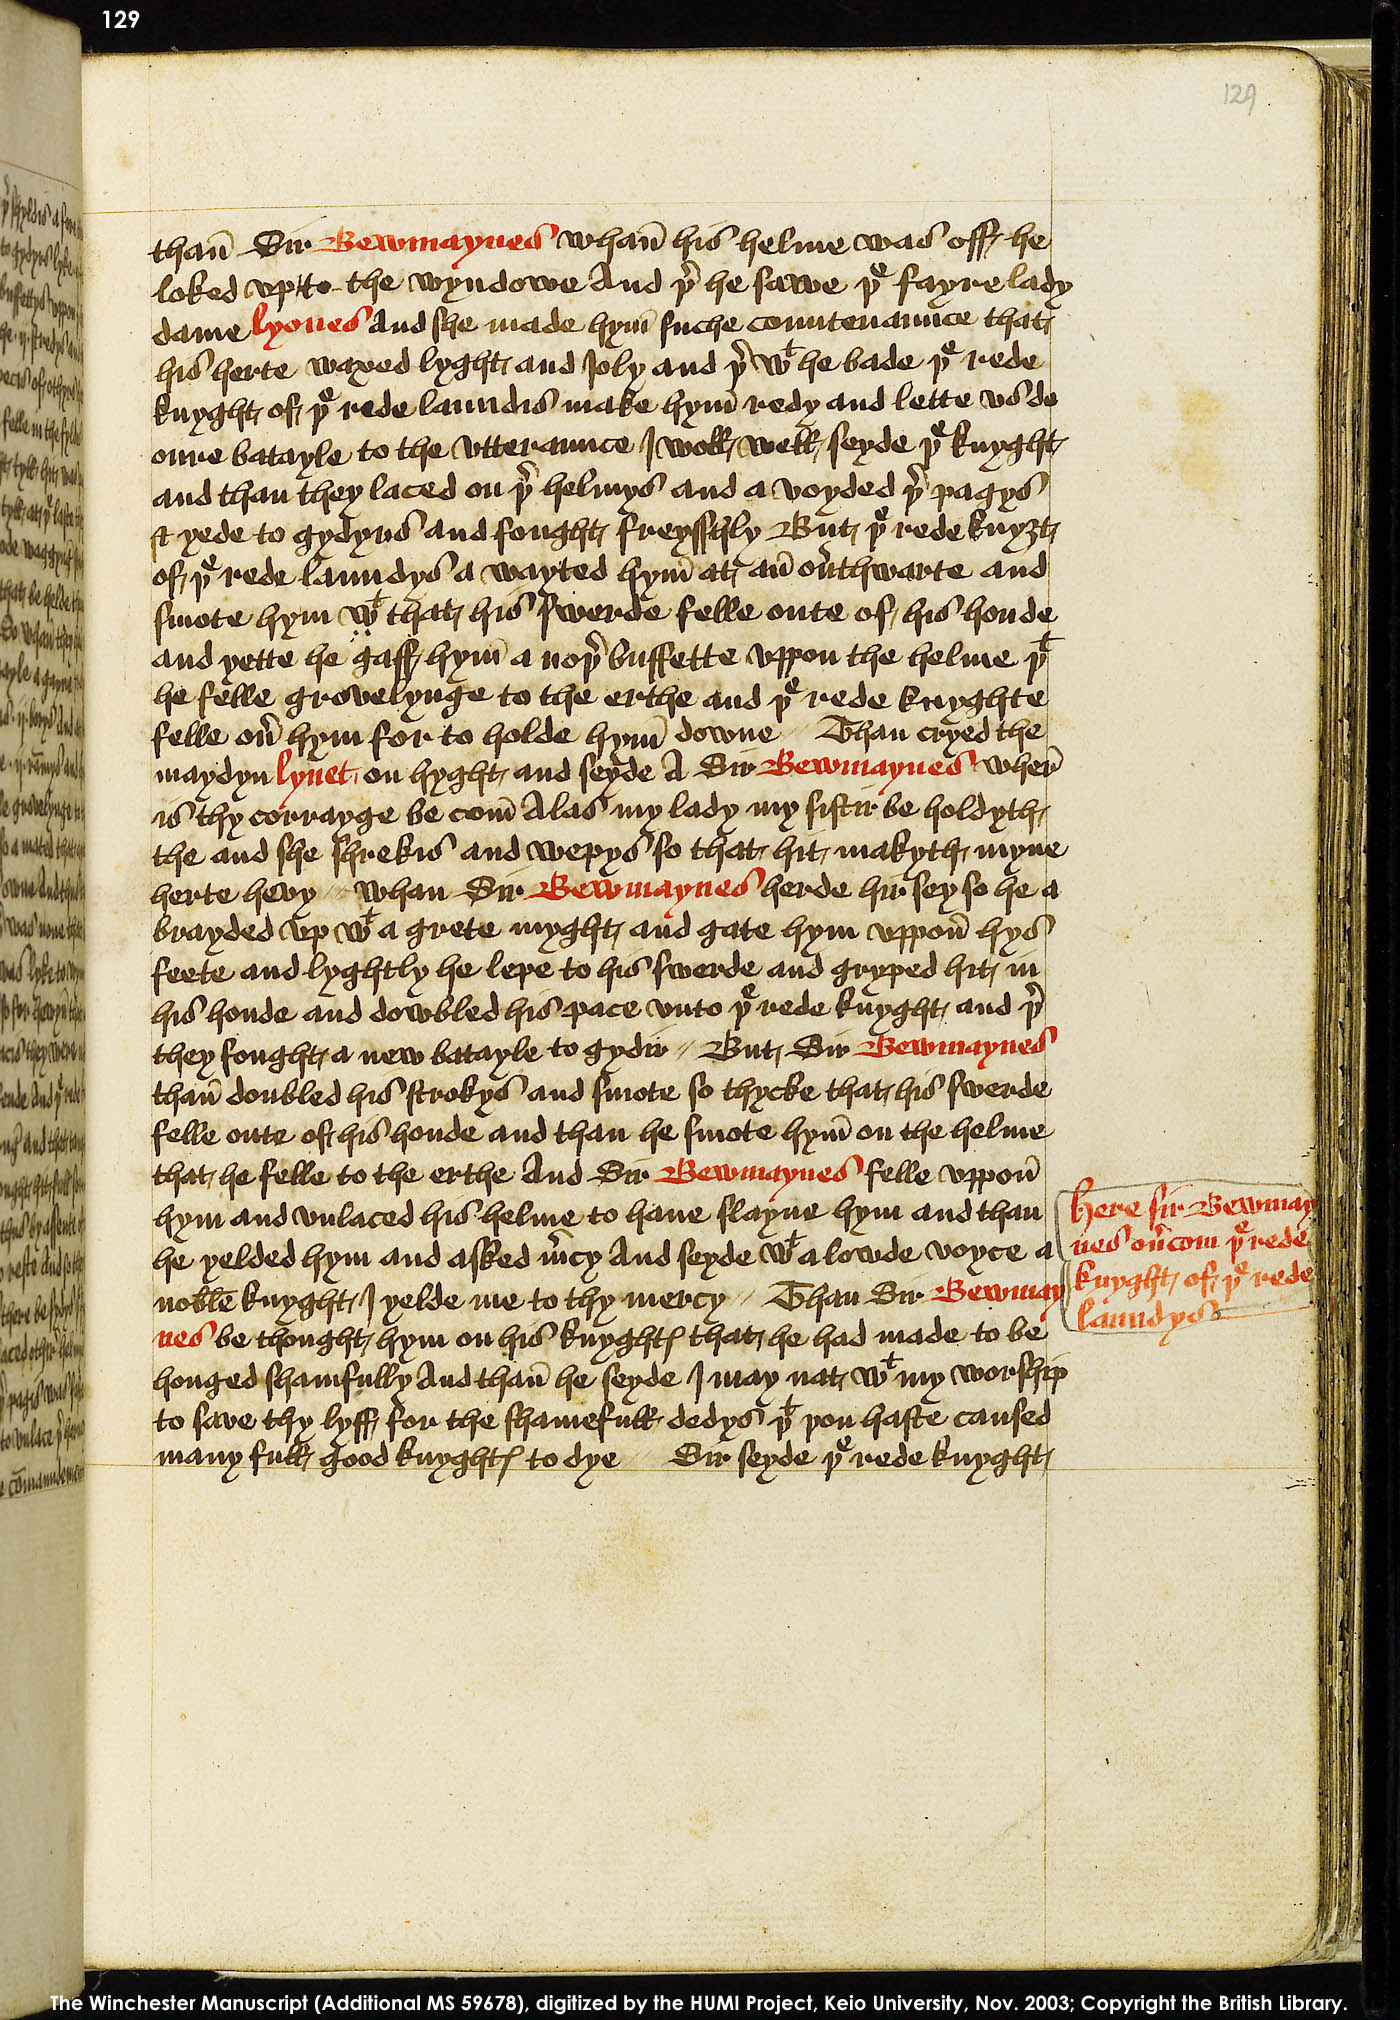 129
129
than̄ Sir Bewmaynes whan̄ his helme was off he
loked vp to the wyndowe And þr he sawe þe fayre lady
dame lyones And she made hym̄ suche countenaunce that
his herte waxed lyght and Joly and þr wt he bade þe rede
knyght of þe rede laundis make hym̄ redy and lette vs do
oure batayle to the vtteraunce J woll well seyde þe knyght
and than they laced on þr helmys and a voyded þr pagys
& yede to gydyrs and fought freysshly But þe rede knyȝt
of þe rede laundys a wayted hym̄ at an̄ ou̾thwarte and
smote hym wt that his swerde felle oute of his honde
and yette he gaff hym̄ a noþr buffette vppon the helme þt
he felle grovelynge to the erthe and þe rede knyghte
felle ou̾ hym for to holde hym̄ downe // Than cryed the
maydyn lynet on hyght and seyde A Sir Bewmaynes wher̄
is thy corrayge be com̄ Alas my lady my sistir be holdyth
the and she shrekis and wepys so that hit makyth myne
herte hevy // whan Sir Bewmaynes herde hir sey so he a
brayded vp wt a grete myght and gate hym vppon̄ hys
feete and lyghtly he lepe to his swerde and gryped hit in
his honde and dowbled his pace vnto þe rede knyght and þr
they fought a new batayle to gydir // But Sir Bewmaynes
than̄ doubled his strokys and smote so thycke that his swerde
felle oute of his honde and than he smote hym̄ on the helme
that he felle to the erthe And Sir Bewmaynes felle vppon̄
hym and vnlaced his helme to haue slayne hym and than
he yelded hym and asked m̾cy And seyde wt a lowde voyce a
noble knyght J yelde me to thy mercy // Than Sir Bewmay
nes be thought hym on his knyghtꝭ that he had made to be
honged shamfully And than̄ he seyde J may nat wt my worship
to save thy lyff for the shamefull dedys þt þou haste caused
many full good knyghtꝭ to dye // Sir seyde þe rede knyght
here sir Bewmay
nes ou̾com þe rede
knyght of þe rede
laundys
The Winchester Manuscript (Additional MS 59678), digitized by the HUMI Project, Keio University, Nov. 2003; Copyright the British Library.